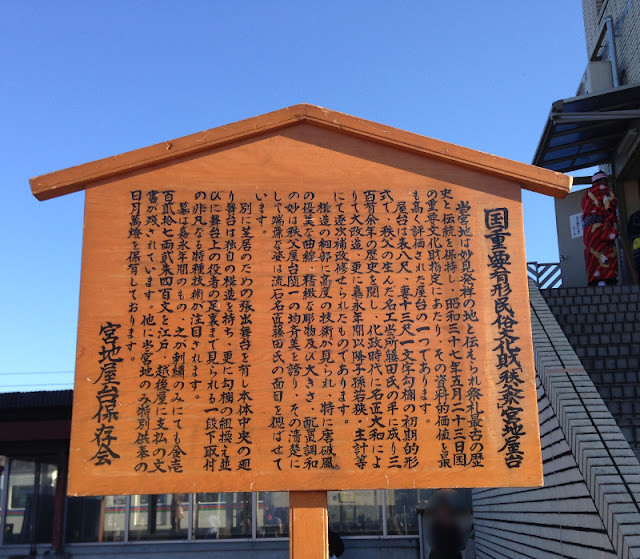 国重要有形民俗文化財 秩父祭宮地屋台
当宮地は妙見発祥の地と伝えられ祭礼最古の歴
史と伝統を保持し、昭和三十七年五月二十三日国
の重要文化財指定にあたり、その資料的価値も最
も高く評価された屋台の一つであります。
屋台は表八尺、妻二十三尺一文字勾欄の初期的形
式で、秩父の生んだ名工当所藤田氏の手に成り三
百有余年の歴史を閲し、化政時代に名匠大和によ
りて大改造、更に嘉永年間以降子孫若狭・主計等
にて逐次補改修せられたものであります。
構造の細部に高度の技術が見られ、特に唐破風
の優美な曲線、精緻な彫物及び大きさ、配置調和
の妙は秩父屋台随一の均斉美を誇り、その清楚に
して端厳な姿は流石名匠藤田氏の面目を偲ばせて
います。
別に芝居のための張出舞台を有し本体中央の廻
り舞台は独自の構造を持ち、更に勾欄の組換え並
びに舞台上の役者の足裏まで見られる一段下取付
の非凡なる特種技術が注目されます。
幕は嘉永年間のもの、之が刺繍のみにても金壱
百弐拾七両弐朱四百文を江戸、越後屋に支払の文
書が残されています。他に当宮地のみ特別供奉の
日月萬燈を保有しております。
宮地屋台保存会